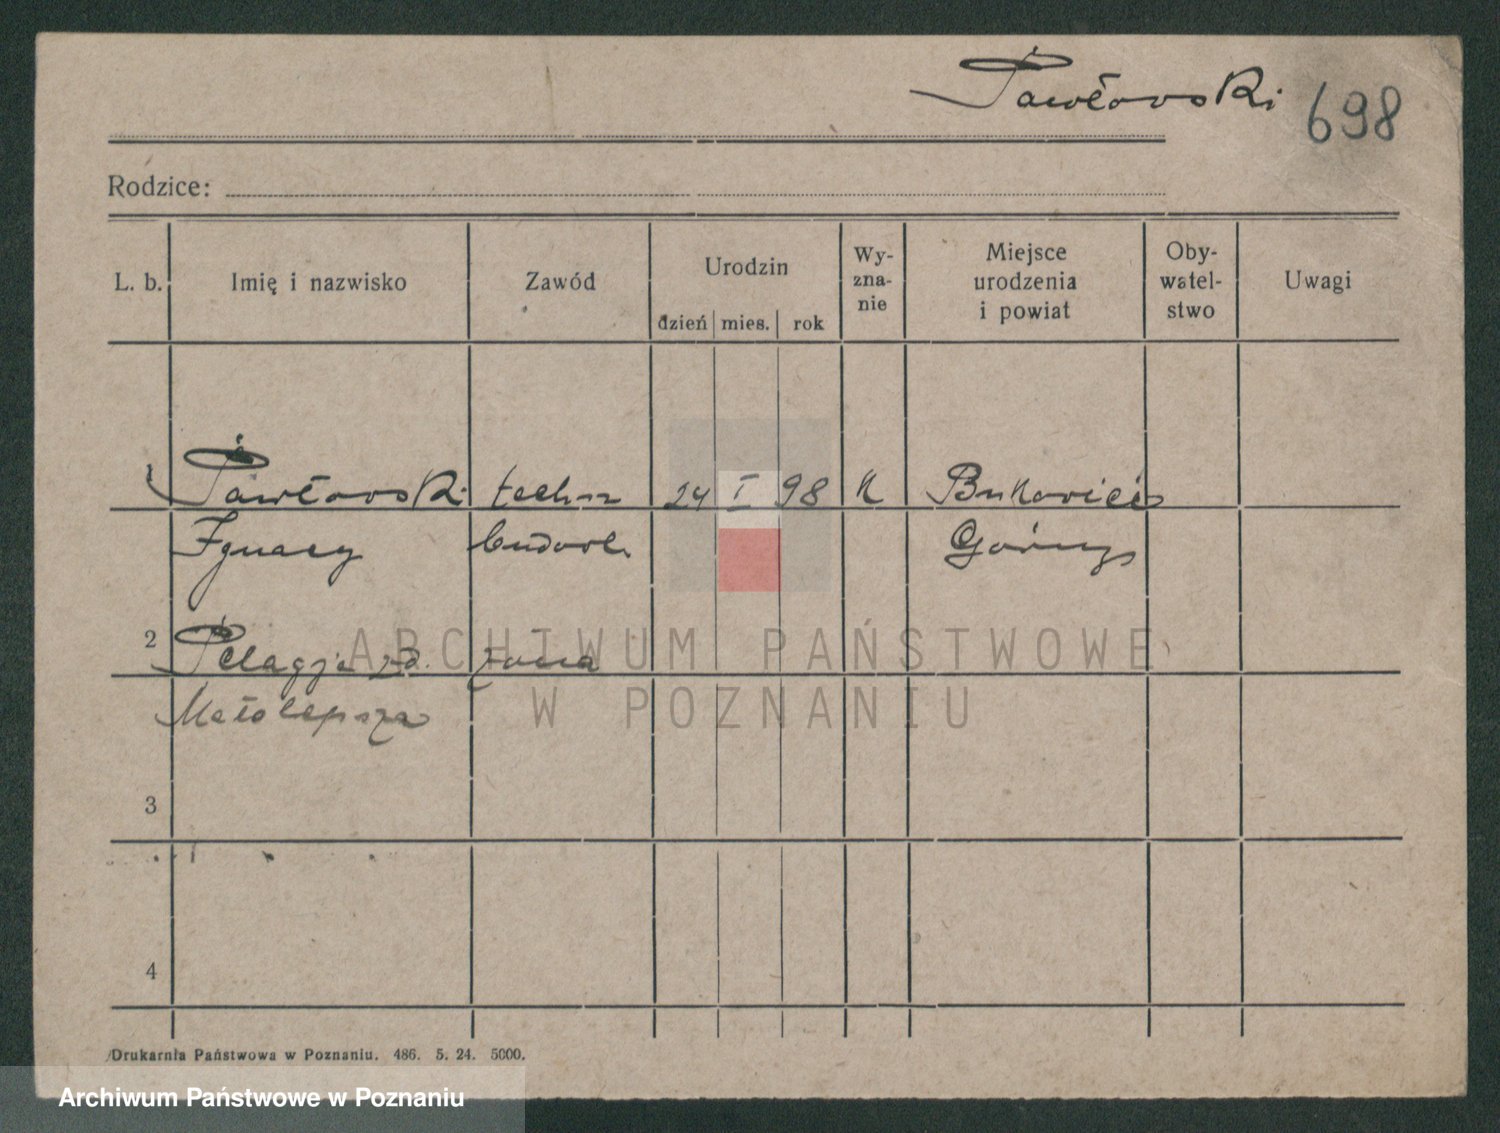 Pawłowski 698
Rodzice:
L. b. Imię i nazwisko Zawód Urodzin Wy-zna-nie Miejsce urodzenia i powiat Oby-watel-stwo Uwagi
dzień mies. rok
Pawłowski techn 24 I 98 K Bukowiec
Ignacy budowl. Górny
2 Pelagja zd. żona
Małolepsza
3
4
Drukarnia Państwowa w Poznaniu. 486. 5. 24. 5000.
ARCHIWUM PAŃSTWOWE
W POZNANIU
Archiwum Państwowe w Poznaniu